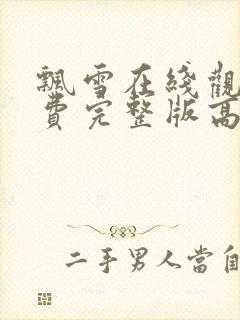 飄雪在綫觀
費完整版高
二手男人當自